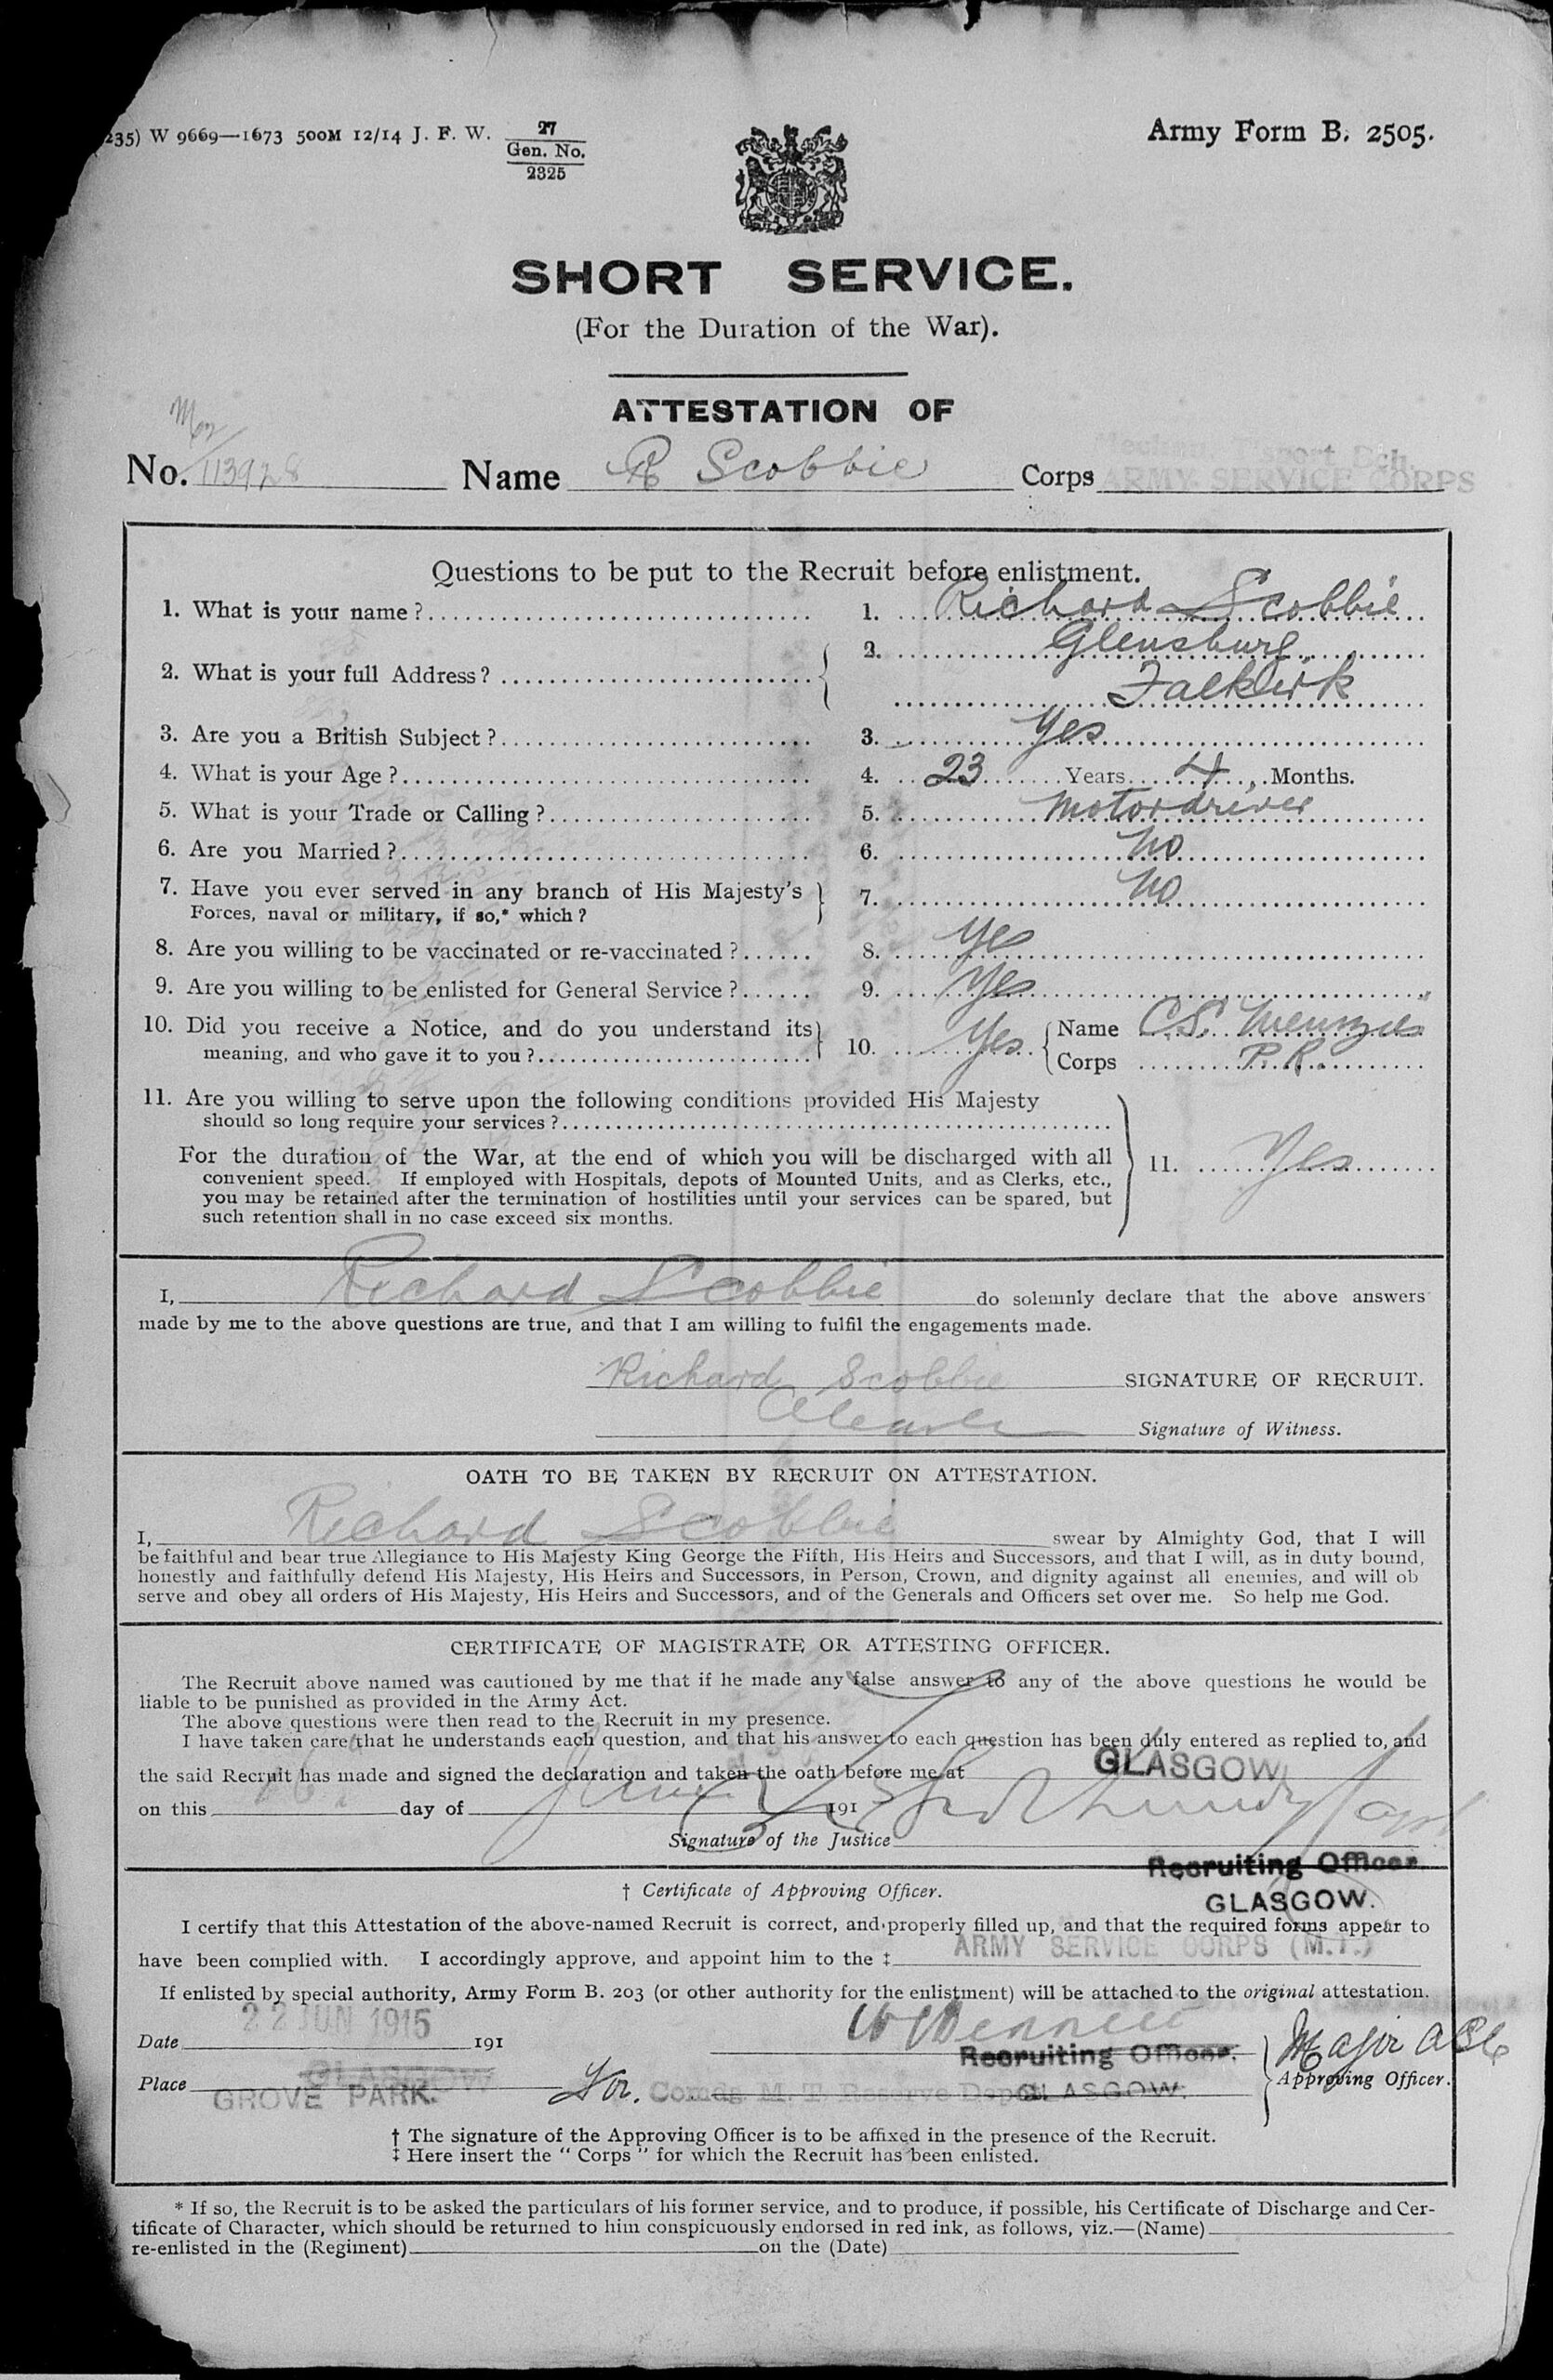 235) W 9669—1673 500M 12/14 J. F. W. 27
Gen. No.
2325
Army Form B. 2505.
SHORT SERVICE.
(For the Duration of the War).
ATTESTATION OF
No. M2/113928 Name R Scobbie Corps ARMY SERVICE CORPS
Questions to be put to the Recruit before enlistment.
1. What is your name? 1. Richard Scobbie
2. What is your full Address? 2. Glensburg
Falkirk
3. Are you a British Subject? 3. Yes
4. What is your Age? 4. 23 Years 4 Months.
5. What is your Trade or Calling? 5. Motordriver
6. Are you Married? 6. No
7. Have you ever served in any branch of His Majesty's 7. No
Forces, naval or military, if so,* which?
8. Are you willing to be vaccinated or re-vaccinated? 8. Yes
9. Are you willing to be enlisted for General Service? 9. Yes
10. Did you receive a Notice, and do you understand its 10. Yes Name C.S. Menzies
meaning, and who gave it to you? Corps P.R.
11. Are you willing to serve upon the following conditions provided His Majesty
should so long require your services?
For the duration of the War, at the end of which you will be discharged with all 11. Yes
convenient speed. If employed with Hospitals, depots of Mounted Units, and as Clerks, etc.,
you may be retained after the termination of hostilities until your services can be spared, but
such retention shall in no case exceed six months.
I, Richard Scobbie do solemnly declare that the above answers
made by me to the above questions are true, and that I am willing to fulfil the engagements made.
Richard Scobbie SIGNATURE OF RECRUIT.
Signature of Witness.
OATH TO BE TAKEN BY RECRUIT ON ATTESTATION.
I, Richard Scobbie swear by Almighty God, that I will
be faithful and bear true Allegiance to His Majesty King George the Fifth, His Heirs and Successors, and that I will, as in duty bound,
honestly and faithfully defend His Majesty, His Heirs and Successors, in Person, Crown, and dignity against all enemies, and will ob
serve and obey all orders of His Majesty, His Heirs and Successors, and of the Generals and Officers set over me. So help me God.
CERTIFICATE OF MAGISTRATE OR ATTESTING OFFICER.
The Recruit above named was cautioned by me that if he made any false answer to any of the above questions he would be
liable to be punished as provided in the Army Act.
The above questions were then read to the Recruit in my presence.
I have taken care that he understands each question, and that his answer to each question has been duly entered as replied to, and
the said Recruit has made and signed the declaration and taken the oath before me at GLASGOW
on this day of June 191
Signature of the Justice
Recruiting Officer
GLASGOW.
† Certificate of Approving Officer.
I certify that this Attestation of the above-named Recruit is correct, and properly filled up, and that the required forms appear to
have been complied with. I accordingly approve, and appoint him to the ‡ ARMY SERVICE CORPS (M.T.)
If enlisted by special authority, Army Form B. 203 (or other authority for the enlistment) will be attached to the original attestation.
22 JUN 1915
Date 191 Recruiting Officer. Major ASC
Place GLASGOW
GROVE PARK. For. Comdg M. T. Reserve Depot GLASGOW. Approving Officer.
† The signature of the Approving Officer is to be affixed in the presence of the Recruit.
‡ Here insert the "Corps" for which the Recruit has been enlisted.
* If so, the Recruit is to be asked the particulars of his former service, and to produce, if possible, his Certificate of Discharge and Cer-
tificate of Character, which should be returned to him conspicuously endorsed in red ink, as follows, viz.—(Name)
re-enlisted in the (Regiment) on the (Date)